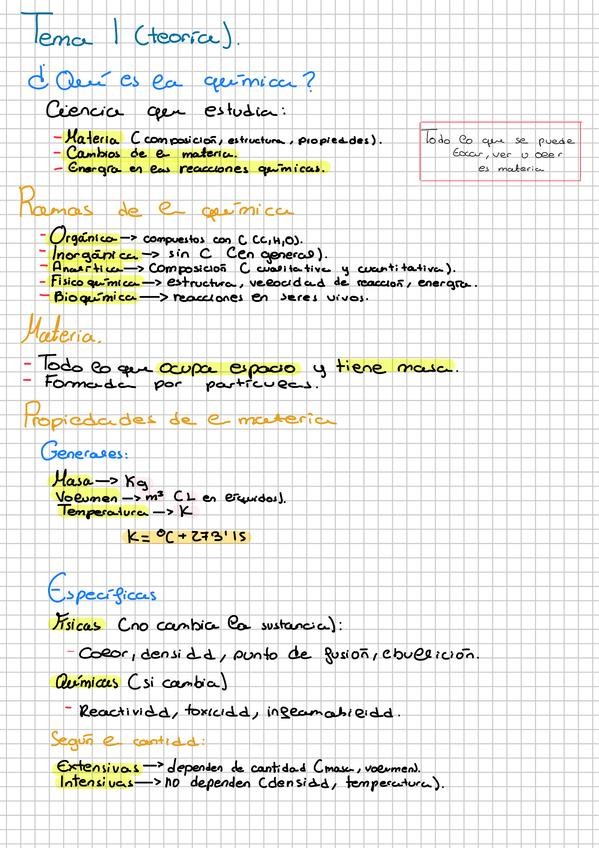 Tema 1 (teoría).
¿Qué es la química?
Ciencia que estudia:
- Materia (composición, estructura, propiedes).
- Cambios de la materia.
- Energía en las reacciones químicas.
Todo lo que se puede
tocar, ver u oler
es materia
Ramas de la química
- Orgánica → compuestos con C (C, H, O).
- Inorgánica → sin C (en general).
- Analítica → composición (cualitativa y cuantitativa).
- Físico química → estructura, velocidad de reacción, energía.
- Bioquímica → reacciones en seres vivos.
Materia.
- Todo lo que ocupa espacio y tiene masa.
- Formada por partículas.
Propiedades de la materia
Generales:
Masa → Kg
Volumen → m³ (L en líquidos).
Temperatura → K
K = ºC + 273'15
Específicas
Físicas (no cambia la sustancia):
- Color, densidd, punto de fusión, ebullición.
Químicas (si cambia)
- Reactividd, toxicidd, inflamabilidd.
Según la cantidd:
Extensivas → dependen de cantidad (masa, volumen).
Intensivas → no dependen (densidad, temperatura).